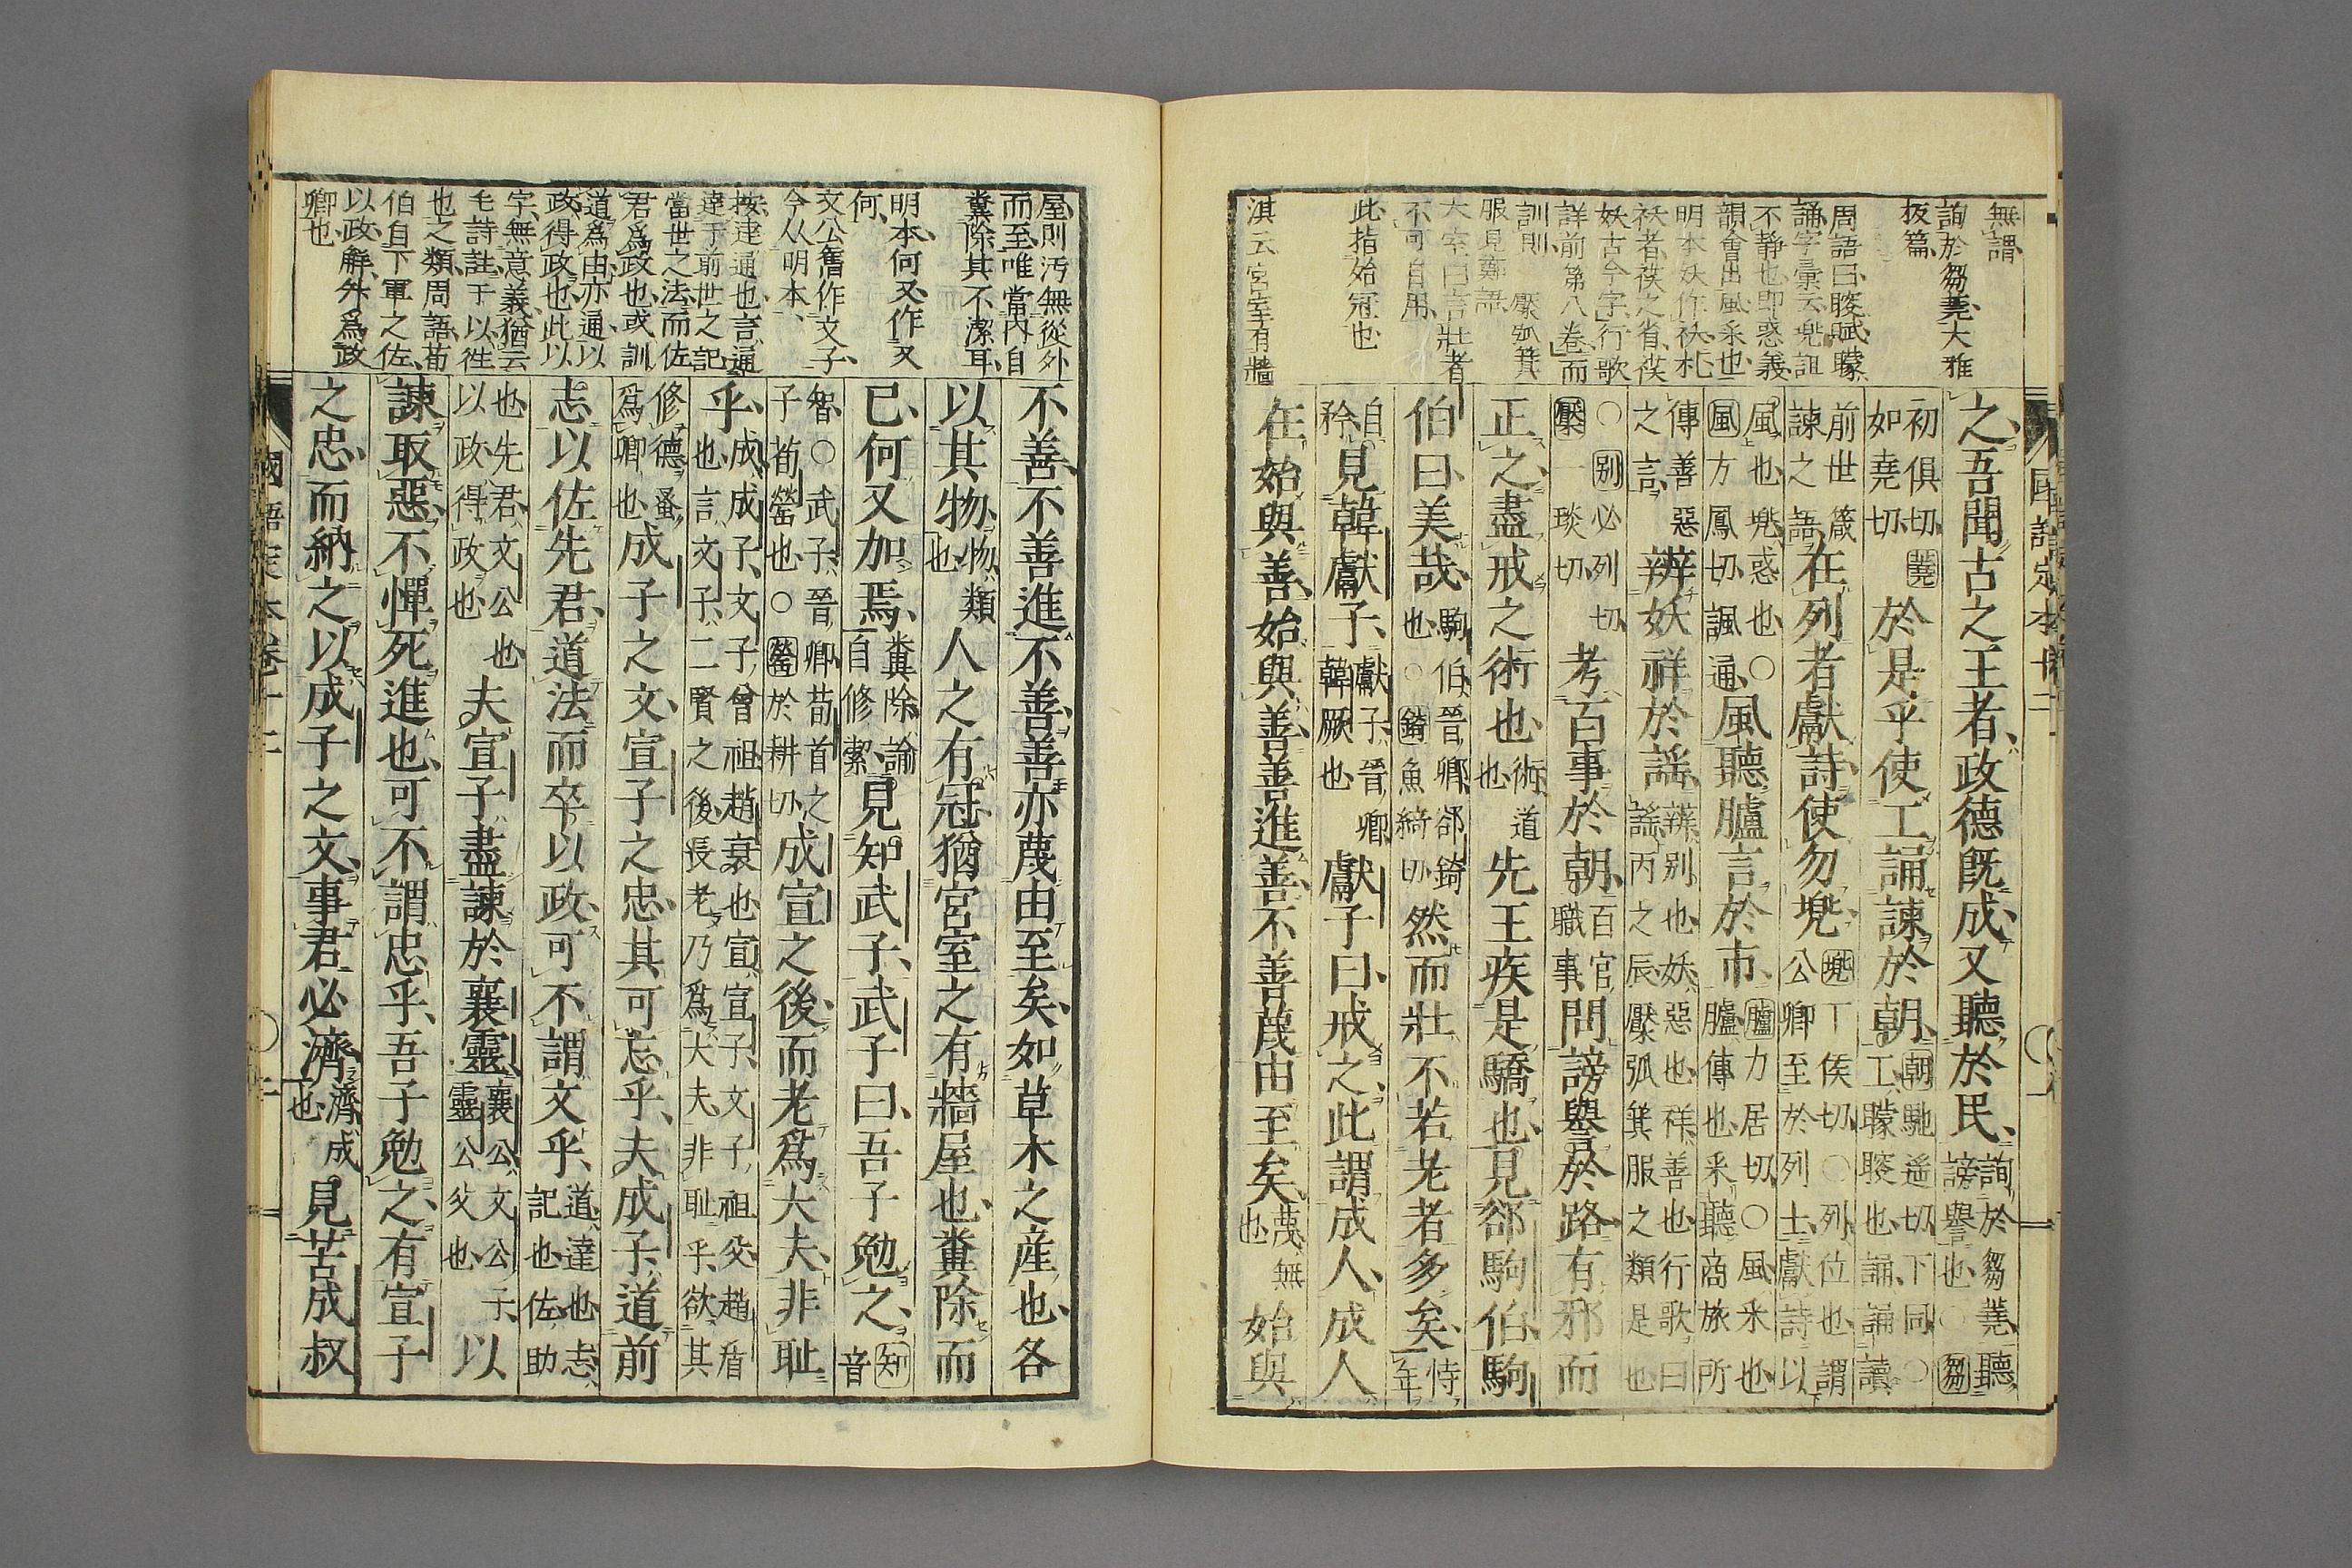 無謂
詢於芻蕘大雅
板篇
周語曰瞍賦矇
誦字彙云兜詛
不靜也即惑義
韻會出風采也
明本妖作祅札
祅者䄏之省䄏
妖古今字行歌
詳前第八卷而
訓則 檿弧箕
服見鄭語
大室曰言壯者
不可自用
此指始冠也
淇云宮室有牆
之吾聞古之王者政德既成又聽於民詢於芻蕘聽謗譽也○芻
初俱切蕘如堯切於是乎使工誦諫於朝朝馳遙切下同○工矇瞍也誦誦讀
前世箴諫之語在列者獻詩使勿兜兜丁侯切○列位也謂公卿至於列士獻詩以
風也兜惑也○風方鳳切諷通風聽臚言於市臚力居切○風采也臚傳也采聽商旅所
傳善惡之言辨妖祥於謠辨別也妖惡也祥善也行歌曰謠丙之辰檿弧箕服之類是也
○別必列切檿一琰切考百事於朝百官職事問謗譽於路有邪而
正之盡戒之術也術道也先王疾是驕也見郤駒伯駒
伯曰美哉駒伯晉卿郤錡也○錡魚綺切然而壯不若老者多矣恃年
自矜見韓獻子獻子晉卿韓厥也獻子曰戒之此謂成人成人
在始與善始與善善進善不善蔑由至矣蔑無也始與
屋則汚無從外
而至唯當內自
糞除其不潔耳
明本何又作又
何
文公舊作文子
今从明本
按達通也言通
達于前世之記
當世之法而佐
君爲政也或訓
道爲由亦通以
政得政也此以
字無意義猶云
毛詩註于以徃
也之類周語荀
伯自下軍之佐
以政解外爲政
卿也
不善不善進不善善亦蔑由至矣如草木之產也各
以其物物類也人之有冠猶宮室之有牆屋也糞除而
已何又加焉糞除論自修潔見知武子武子曰吾子勉之知音
智○武子晉卿荀首之子荀罃也○罃於耕切成宣之後而老爲大夫非恥
乎成成子文子曾祖趙衰也宣宣子文子祖父趙盾也言文子二賢之後長老乃爲大夫非耻乎欲其
修德蚤爲卿也成子之文宣子之忠其可忘乎夫成子道前
志以佐先君道法而卒以政可不謂文乎道達也志記也佐助
也先君文公也以政得政也夫宣子盡諫於襄靈襄公文公子靈公襄公父也以
諫取惡不憚死進也可不謂忠乎吾子勉之有宣子
之忠而納之以成子之文事君必濟濟成也見苦成叔
國語定本卷十二